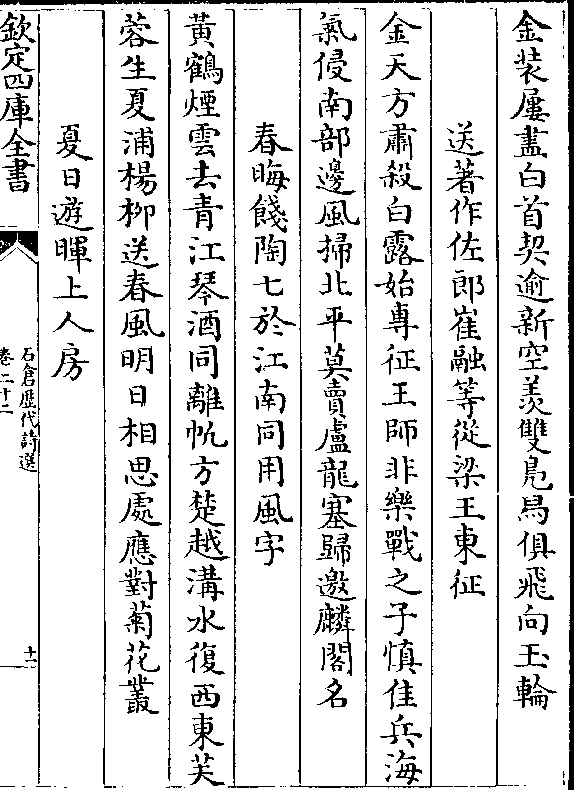 金装屢盡白首契逾新空羨雙鳬舄俱飛向玉輪
送著作佐郎崔融等從梁王東征
金天方肅殺白露始專征王師非樂戰之子慎佳兵海
氣侵南部邊風掃北平莫賣盧龍塞歸邀麟閣名
春晦餞陶七於江南同用風字
黃鶴煙雲去青江琴酒同離帆方楚越溝水復西東芙
蓉生夏浦楊柳送春風明日相思處應對菊花叢
夏日遊暉上人房
欽定四庫全書
石倉歷代詩選
卷二十二
十一